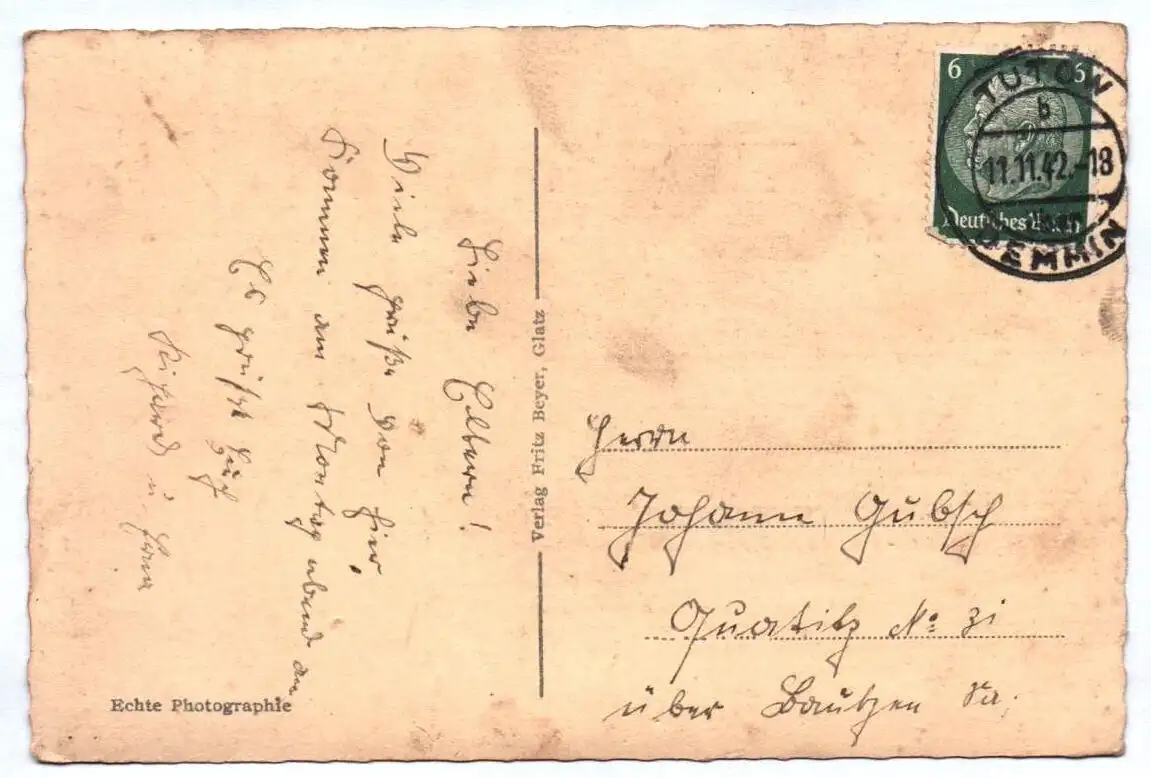 Liebe Eltern!
Viele Grüße von hier,
kommen am Montag abend an
Es grüßt Euch
Richard u. Erna
Echte Photographie
Verlag Fritz Beyer, Glatz
6 6
Deutsches Reich
TUTOW
b
11.11.42.-18
DEMMIN
Herrn
Johann Gubsch
Quatitz No: 31
über Bautzen Sa.